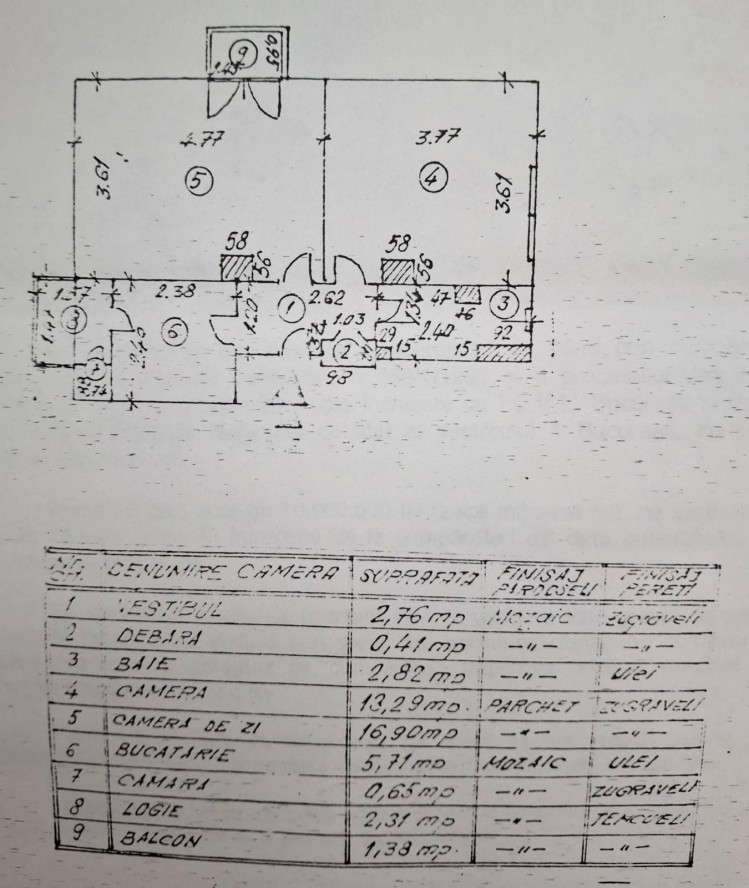 9 0,95
4.77 3.77
3.61 5 4 3.61
58 56 58 56
1.57 2.38 1 2.62 47 3
1.41 6 1.20 1.34 16
2.40 1.03 29 2.40 92
2 15 15
93
88 7 .74
NR. CR. DENUMIRE CAMERA SUPRAFATA FINISAJ PARDOSELI FINISAJ PERETI
1 VESTIBUL 2,76 mp Mozaic Zugraveli
2 DEBARA 0,41 mp —"— —"—
3 BAIE 2,82 mp —"— Ulei
4 CAMERA 13,29 mp. PARCHET ZUGRAVELI
5 CAMERA DE ZI 16,90 mp —"— —"—
6 BUCATARIE 5,71 mp MOZAIC ULEI
7 CAMARA 0,65 mp —"— ZUGRAVELI
8 LOGIE 2,31 mp —"— TENCUELI
9 BALCON 1,38 mp. —"— —"—